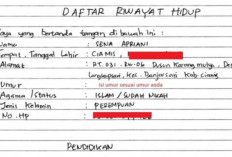 DAFTAR RIWAYAT HIDUP
Saya yang bertanda tangan di bawah ini :
Nama : SENA APRIANI
Tempat, Tanggal Lahir : CIAMIS,
Alamat : RT.031 - RW.06 Dusun Karang mulya, Desa
Langkapsari, Kec. Banjarsari Kab Ciamis
Umur : isi umur sesuai umur anda
Agama / Status : ISLAM / SUDAH NIKAH
Jenis Kelamin : PEREMPUAN
No. HP :
PENDIDIKAN